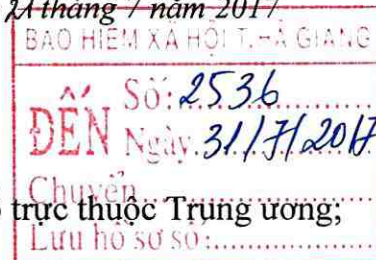 21 tháng 7 năm 2017
BẢO HIỂM XÃ HỘI T. HÀ GIANG
ĐẾN
Số: 2536
Ngày. 31/7/2017
Chuyển
trực thuộc Trung ương;
Lưu hồ sơ số: